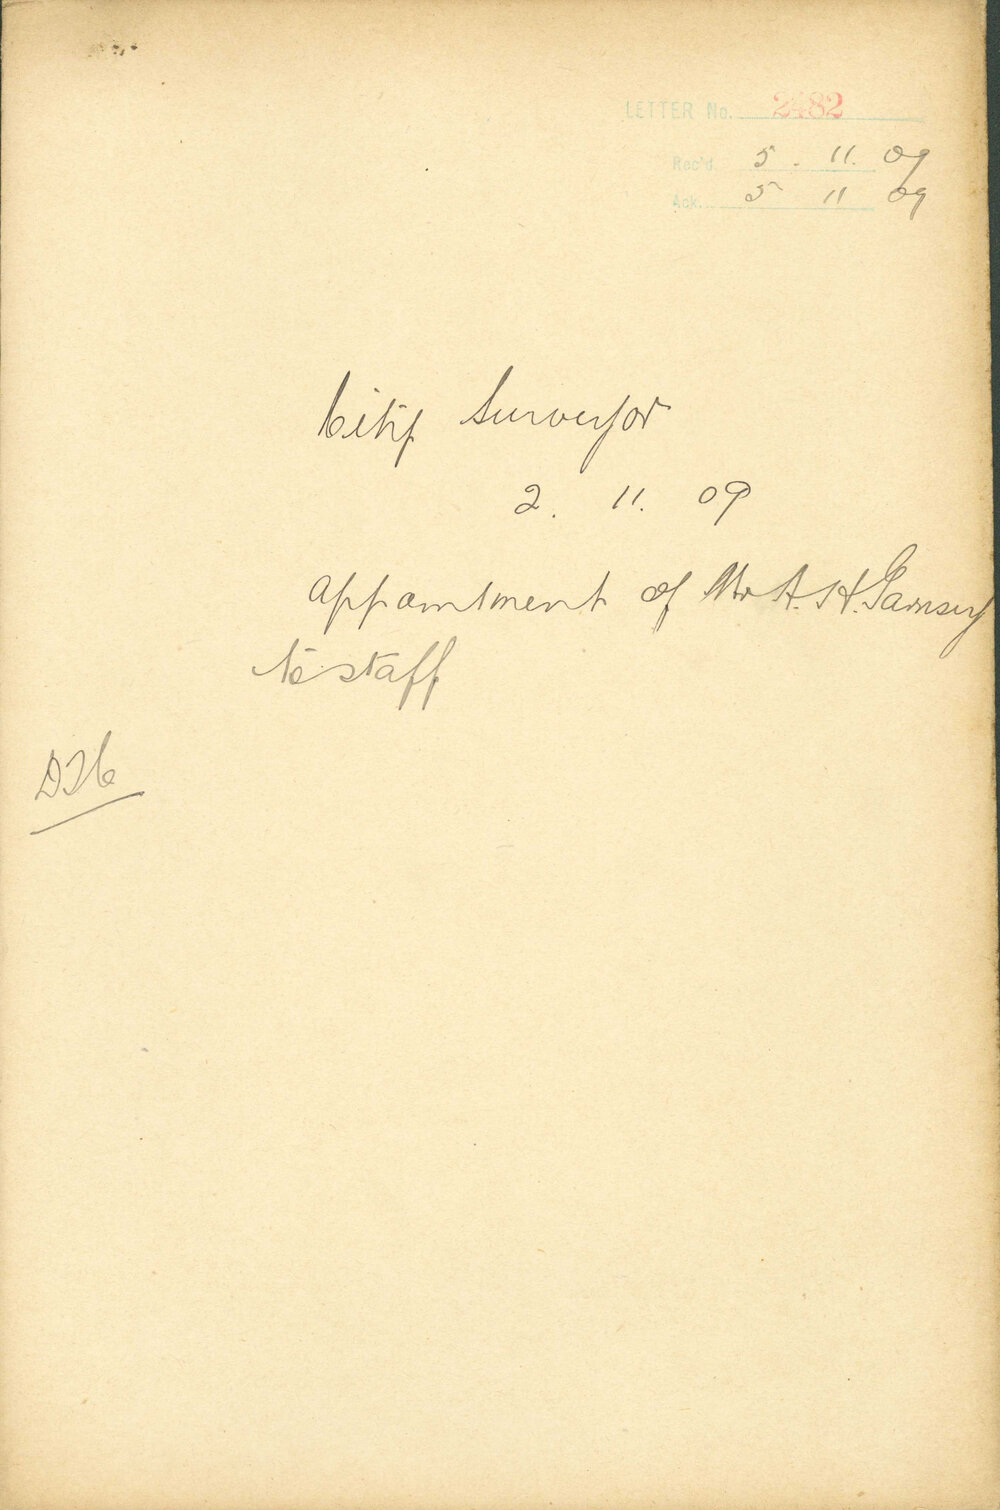 LETTER No. 2482
Rec'd. 5 . 11. 09
Ack. 5 11 09
City Surveyor
2. 11. 09
appointment of Mr A. H. Garnsey
to staff